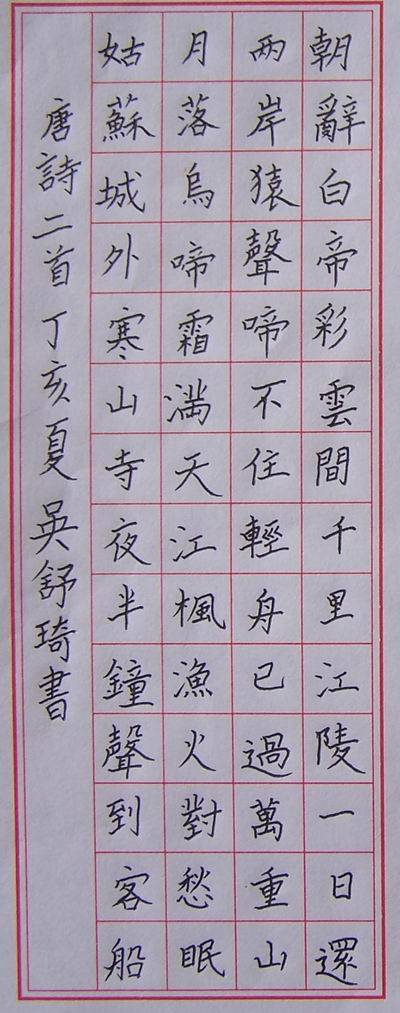 朝辭白帝彩雲間千里江陵一日還
兩岸猿聲啼不住輕舟已過萬重山
月落烏啼霜滿天江楓漁火對愁眠
姑蘇城外寒山寺夜半鐘聲到客船
唐詩二首丁亥夏吳舒琦書